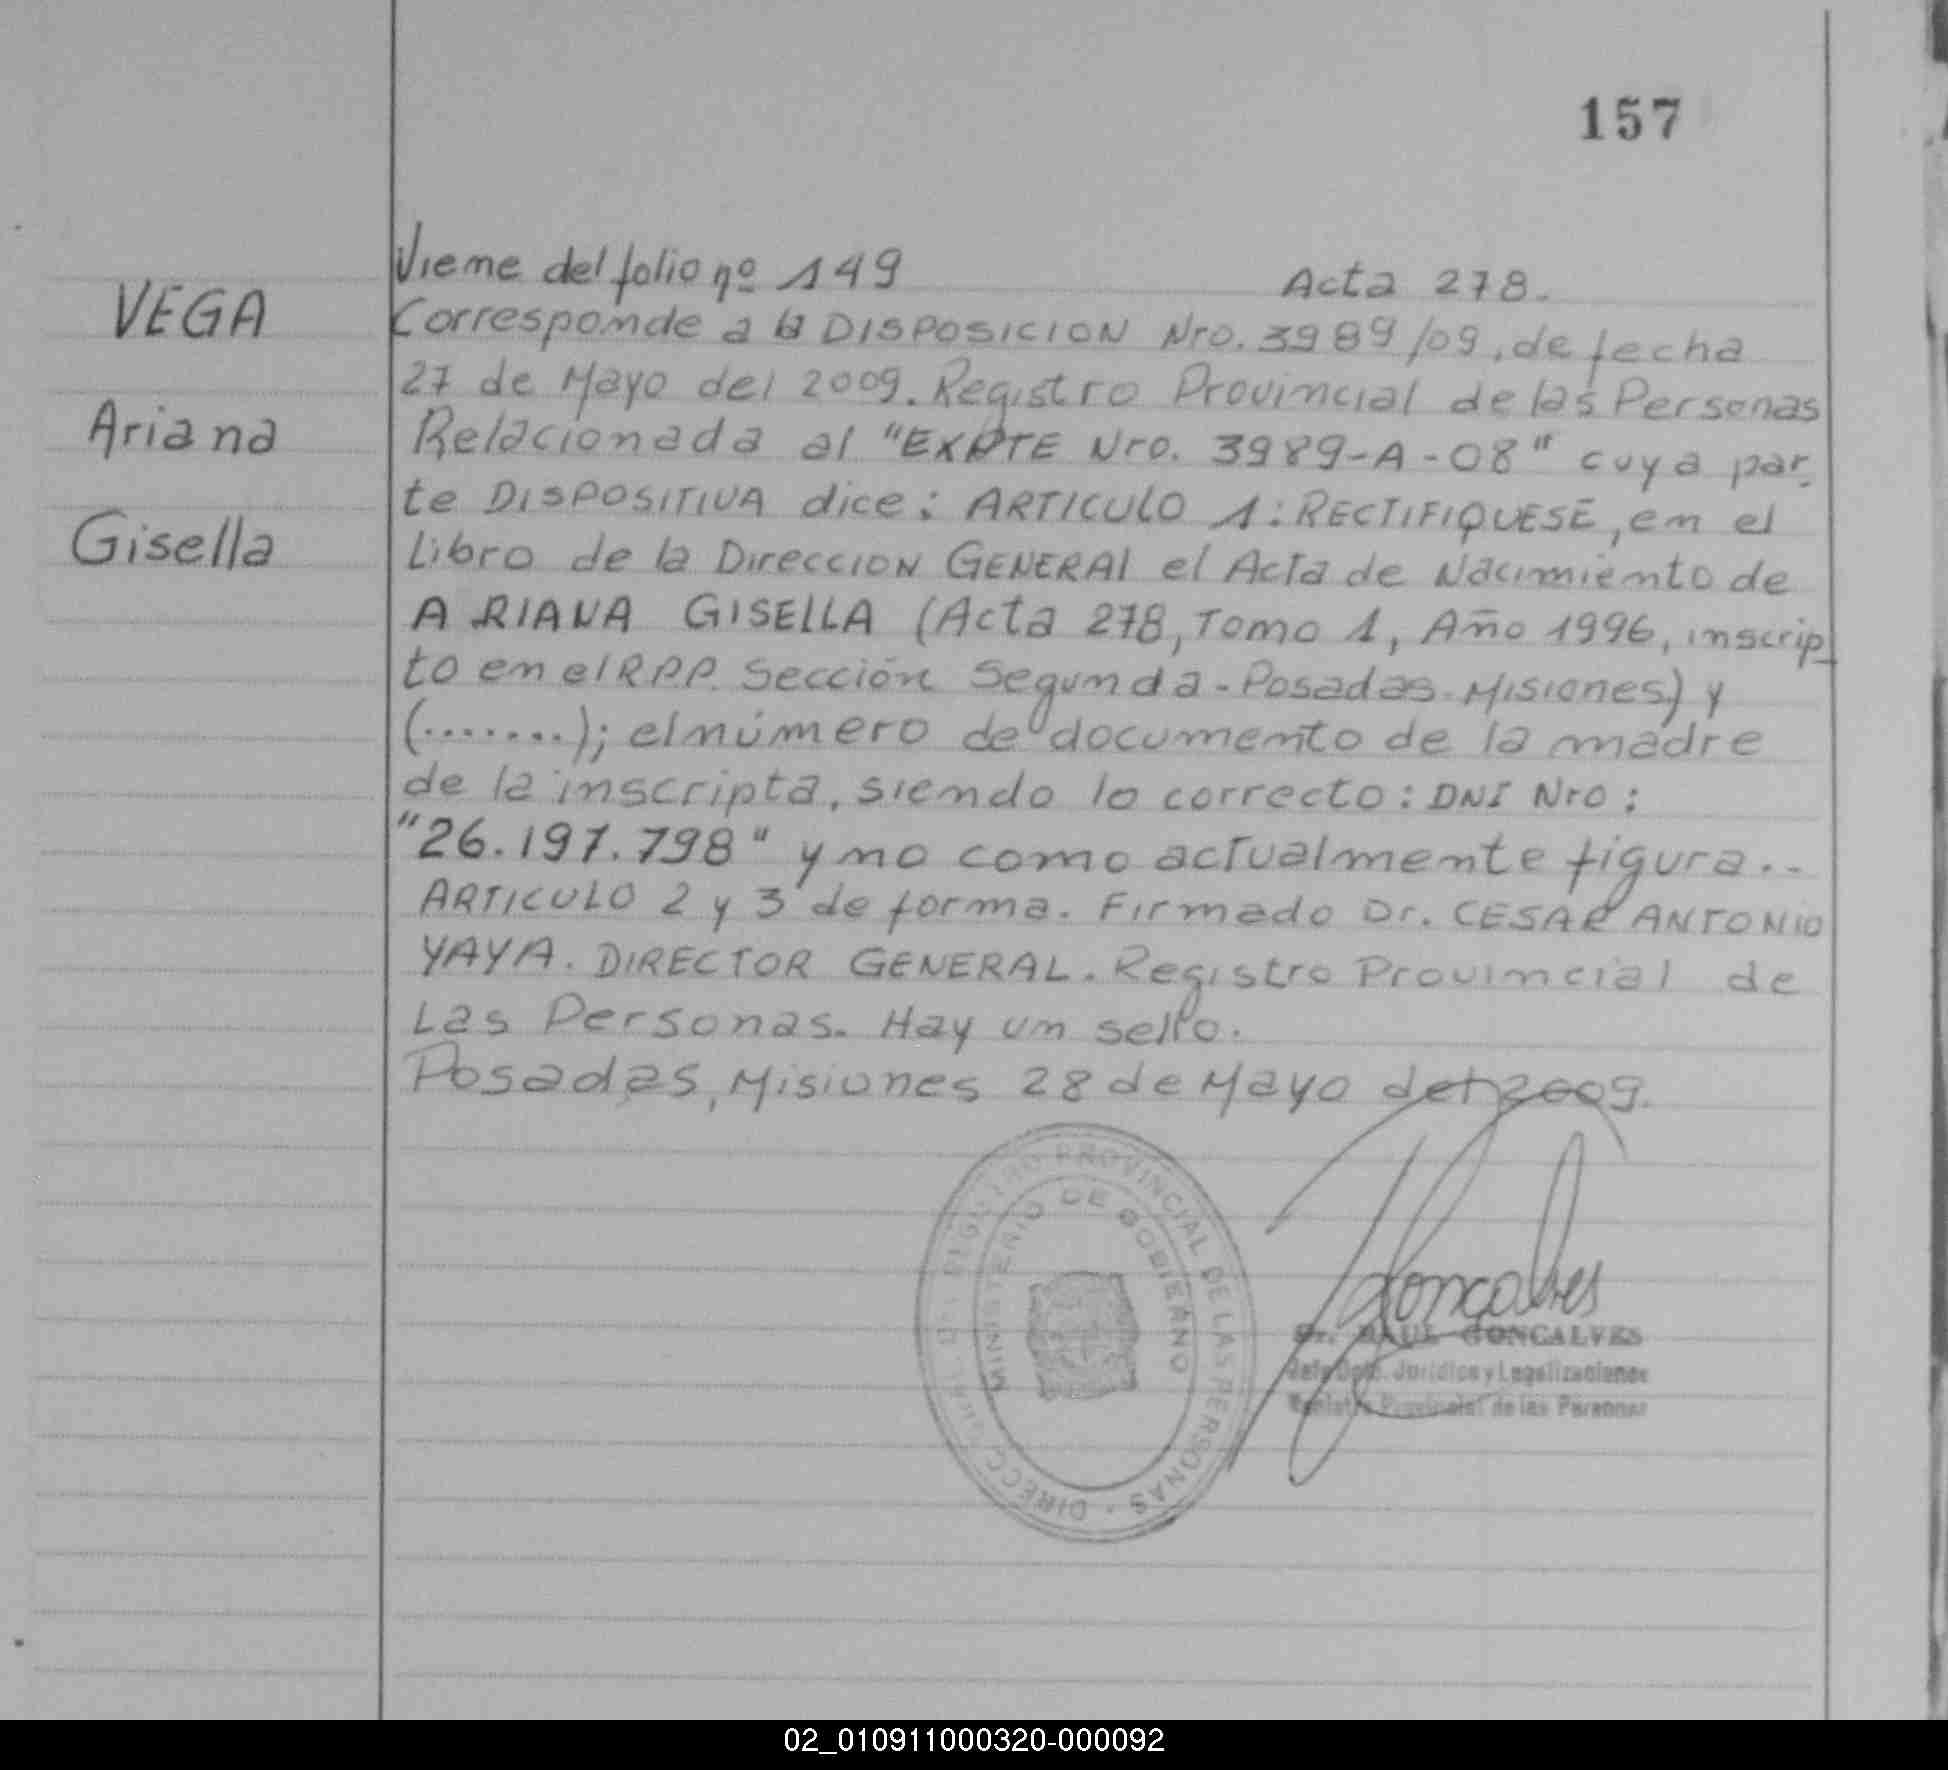 157
VEGA
Ariana
Gisella
Viene del folio nº 149 Acta 278.
Corresponde a la DISPOSICION Nro. 3989/09, de fecha
27 de Mayo del 2009. Registro Provincial de las Personas
Relacionada al "EXPTE Nro. 3989-A-08" cuya par-
te DISPOSITIVA dice: ARTICULO 1: RECTIFIQUESE, en el
Libro de la Direccion GENERAL el Acta de Nacimiento de
ARIANA GISELLA (Acta 278, Tomo 1, Año 1996, inscrip-
to en el R.P.P. Sección Segunda - Posadas - Misiones) y
(........); el número de documento de la madre
de la inscripta, siendo lo correcto: DNI Nro:
"26.197.798" y no como actualmente figura..-
ARTICULO 2 y 3 de forma. Firmado Dr. CESAR ANTONIO
YAYA. DIRECTOR GENERAL. Registro Provincial de
Las Personas. Hay un sello.
Posadas, Misiones 28 de Mayo del 2009.
REGISTRO PROVINCIAL DE LAS PERSONAS
MINISTERIO DE GOBIERNO
Goncalves
Dr. RAUL GONCALVES
Jefe Dpto. Jurídico y Legalizaciones
Registro Provincial de las Personas
02_010911000320-000092